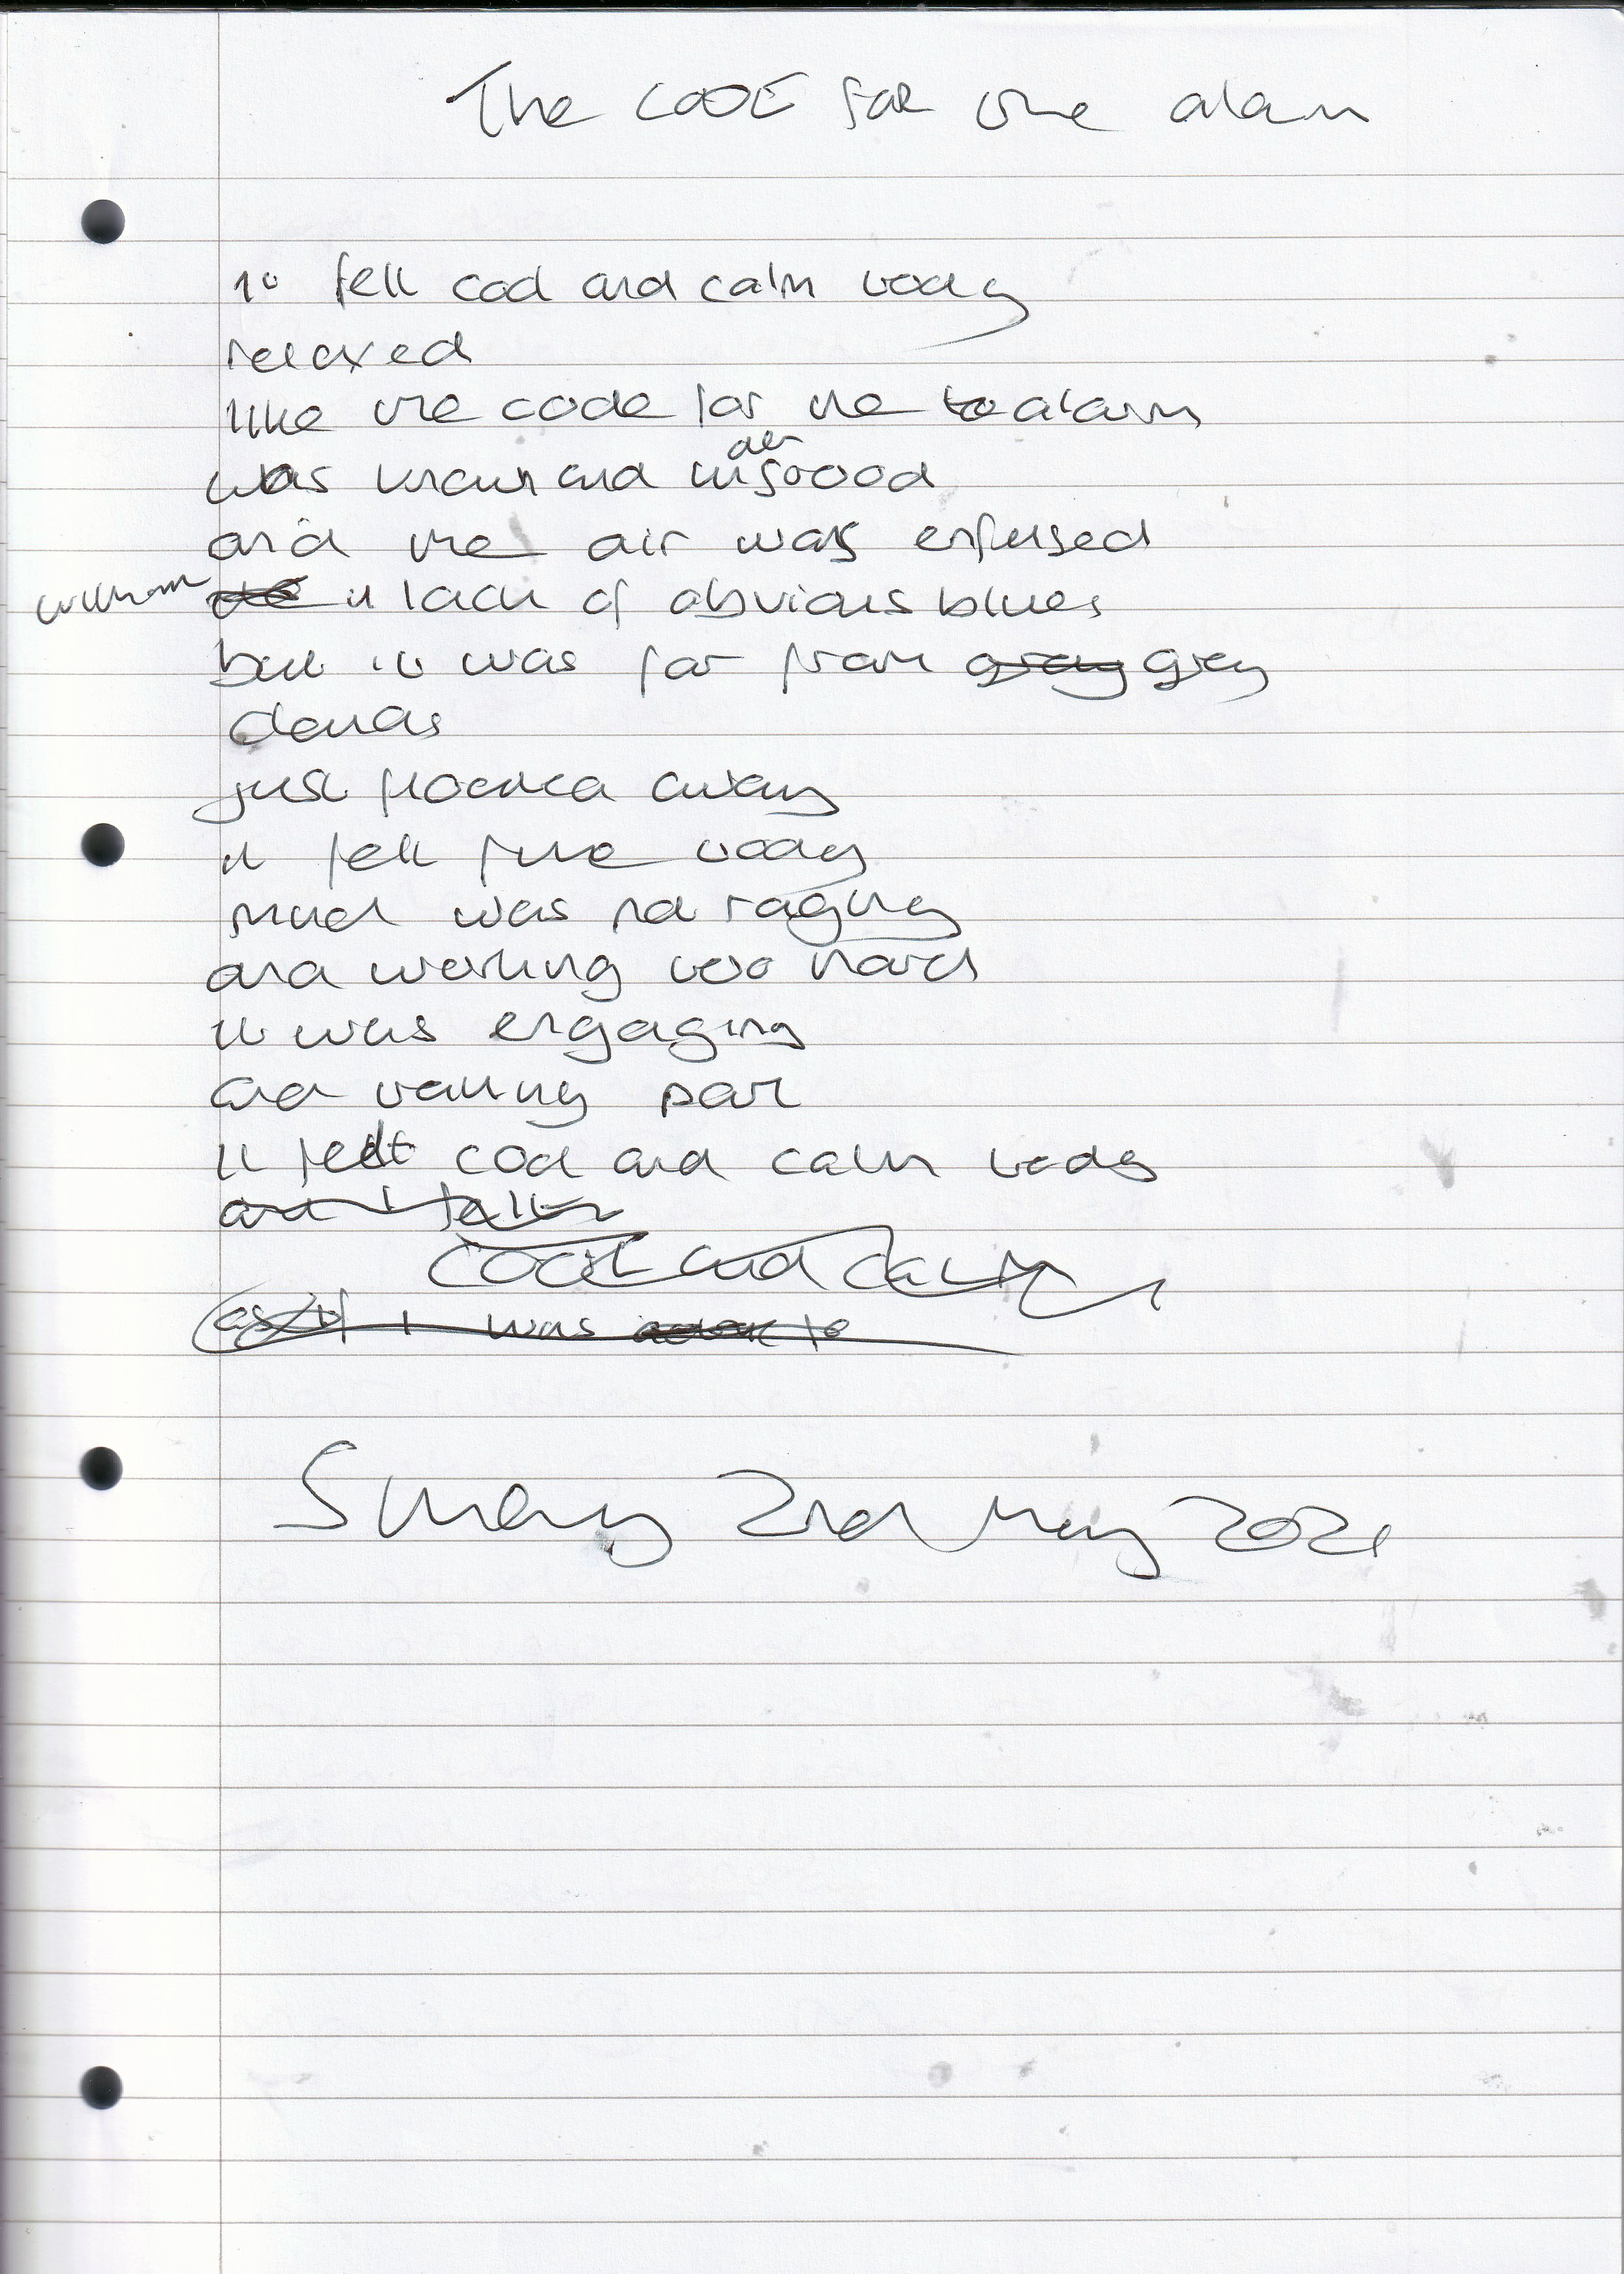 The CODE FOR the alarm
it felt cool and calm today
relaxed
like the code for the to alarm
was known and
and the air was enfused
with it lack of obvious blues
but it was far from gray grey
clouds
just floated away
it felt fine today
mind was not raging
and working too hard
it was engaging
and taking part
it felt cool and calm today
and I felt
cool and calm
as if I was
Sunday 2nd May 2021